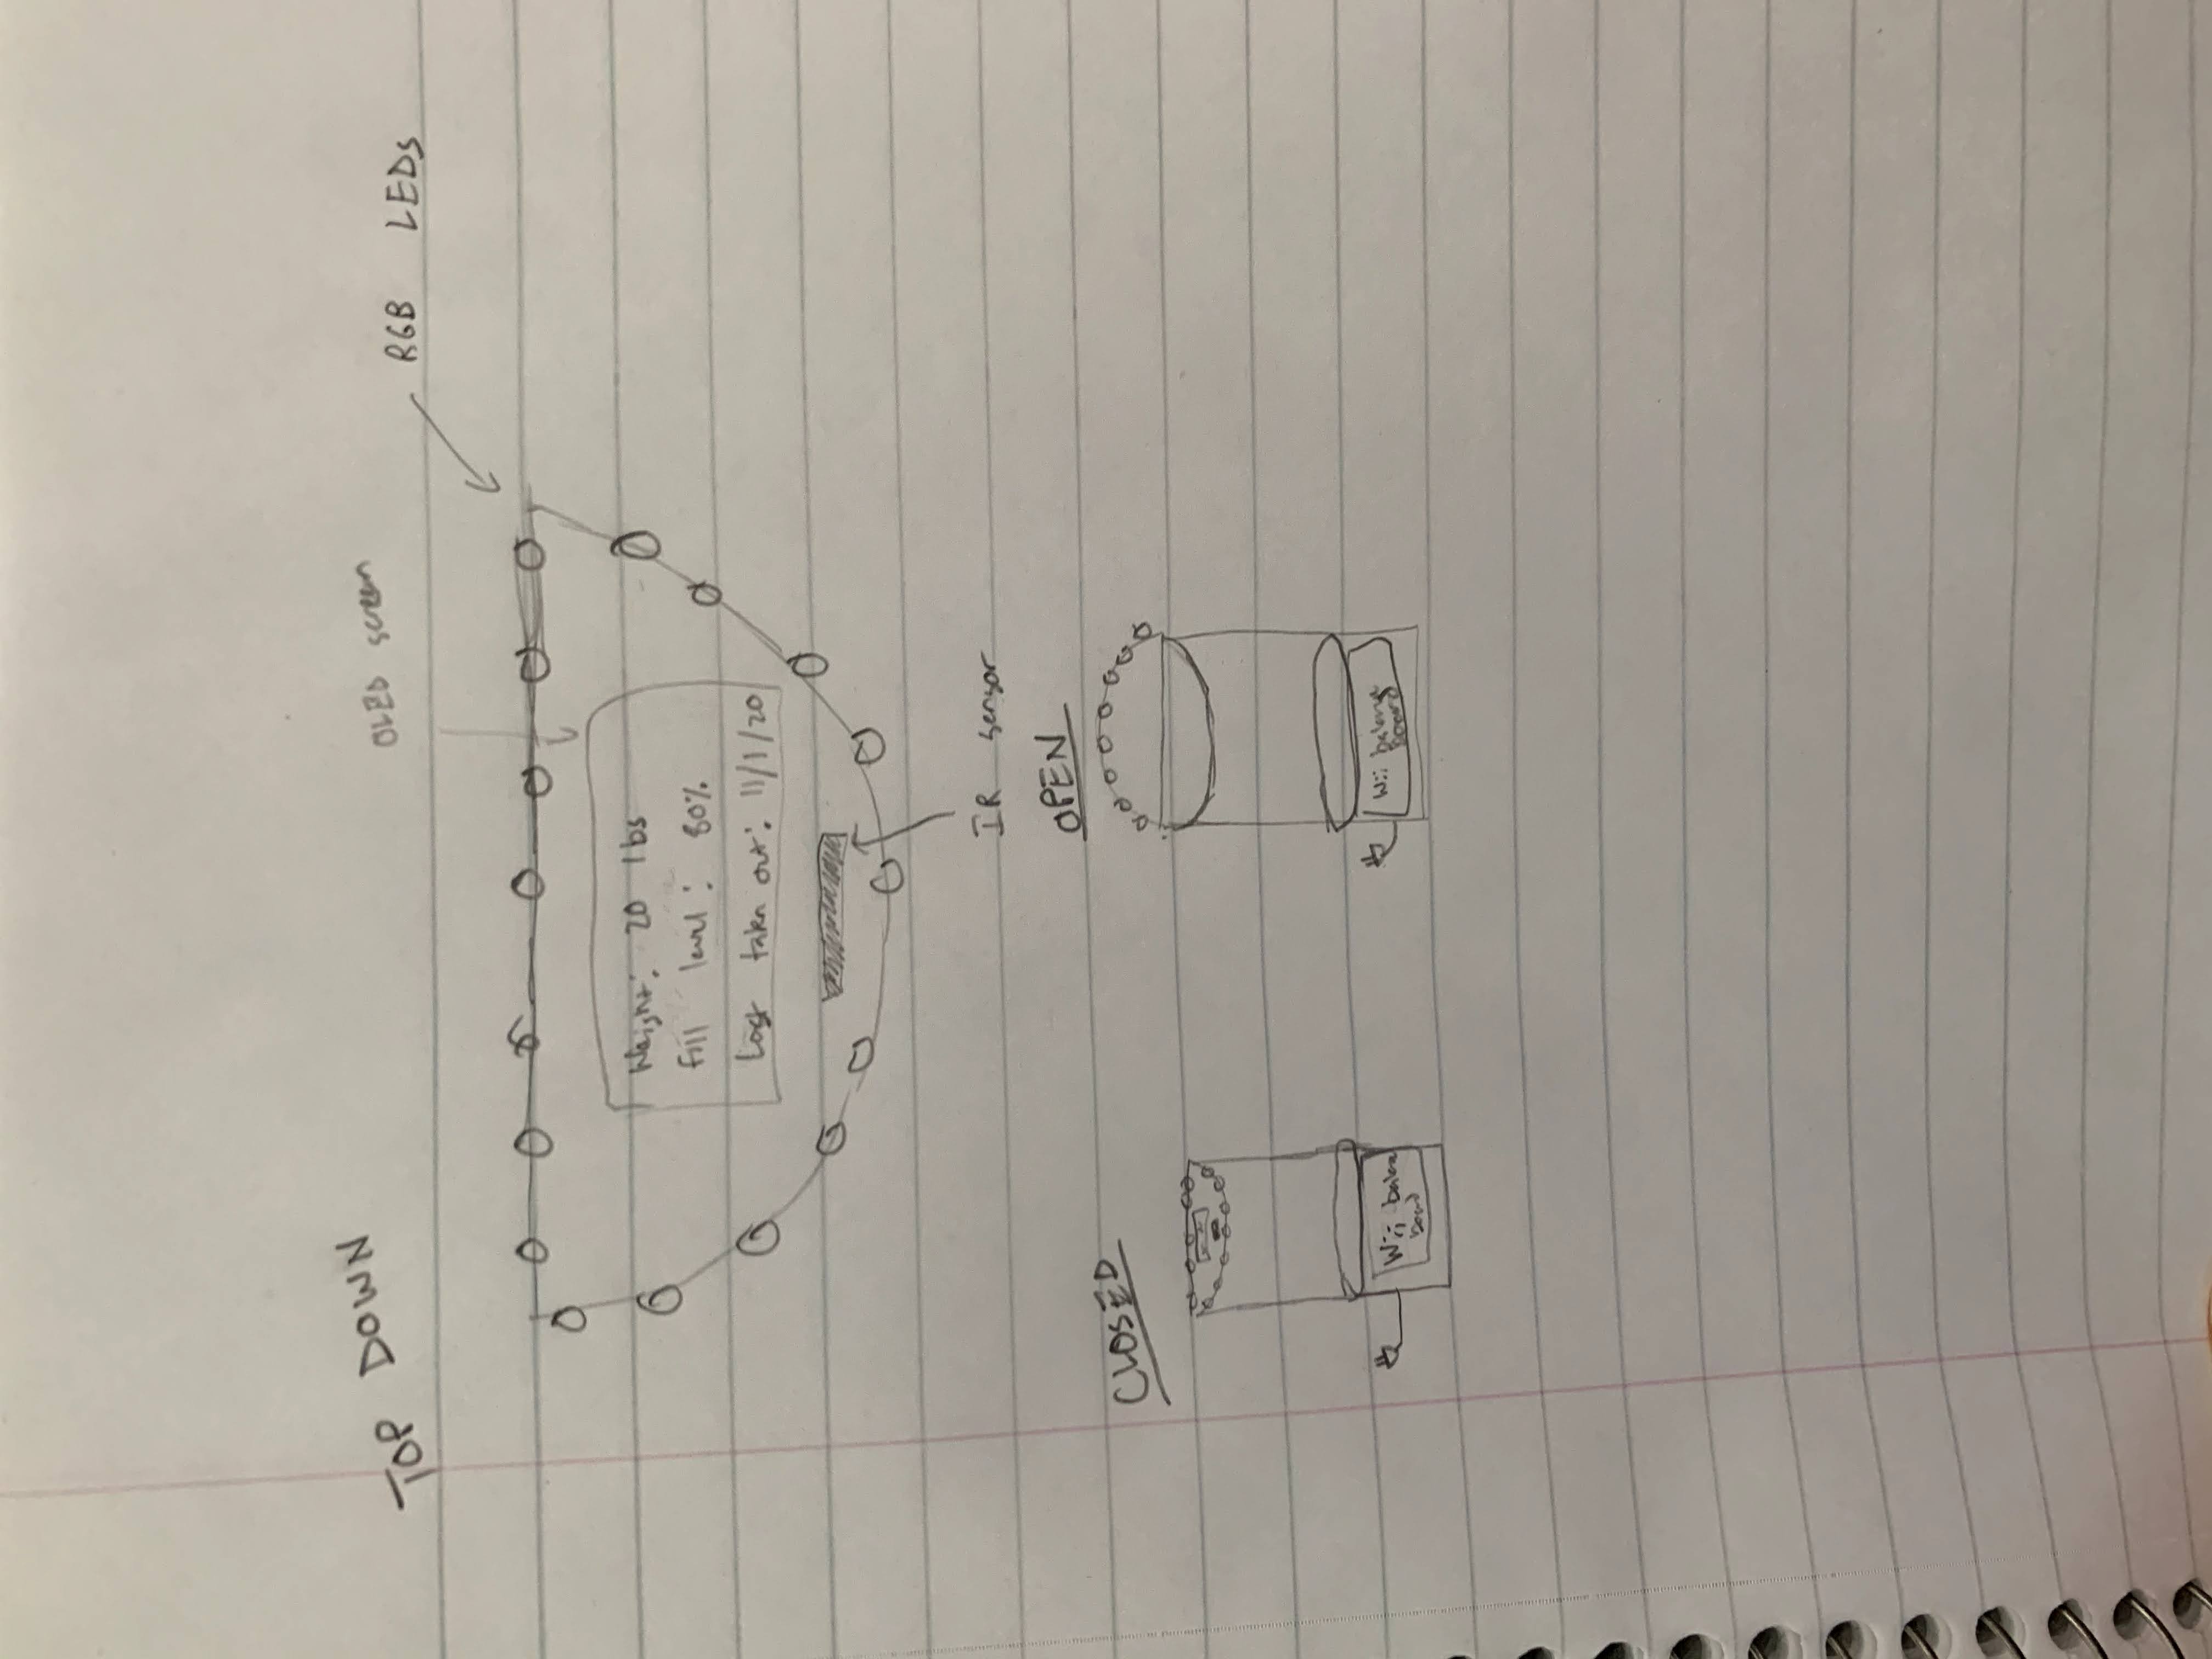 TOP DOWN
OLED screen
RGB LEDs
Weight: 20 lbs
fill level: 80%
Last taken out: 11/1/20
IR sensor
OPEN
CLOSED
Wii balance
board
Wii balance
board